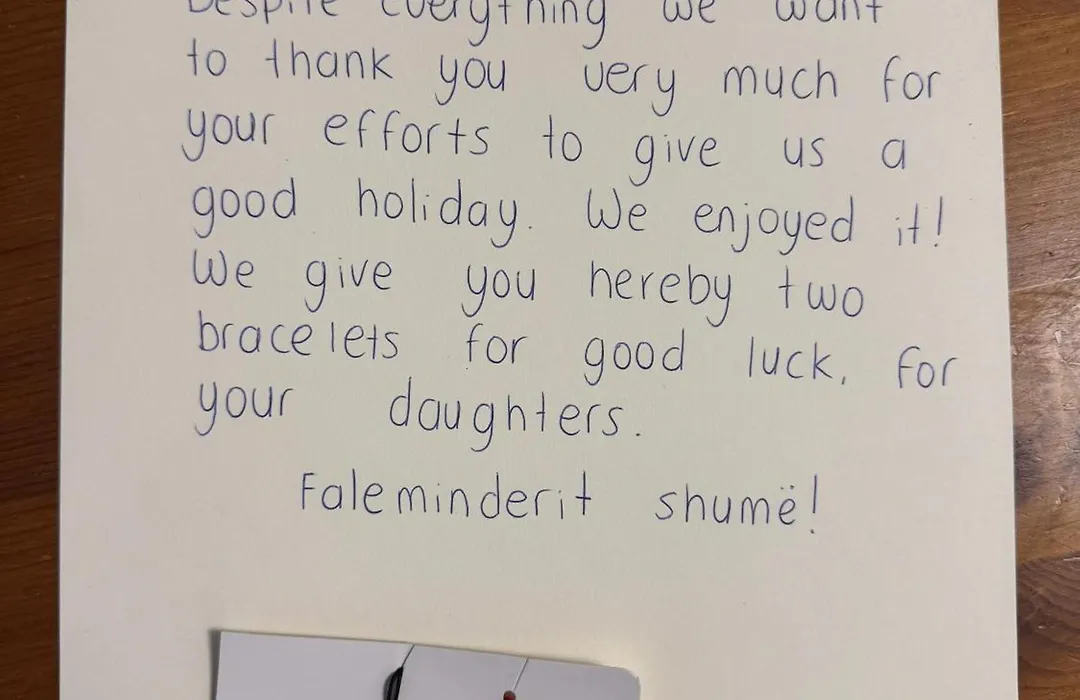 Despite everything we want
to thank you very much for
your efforts to give us a
good holiday. We enjoyed it!
We give you hereby two
bracelets for good luck, for
your daughters.
Faleminderit shumë!